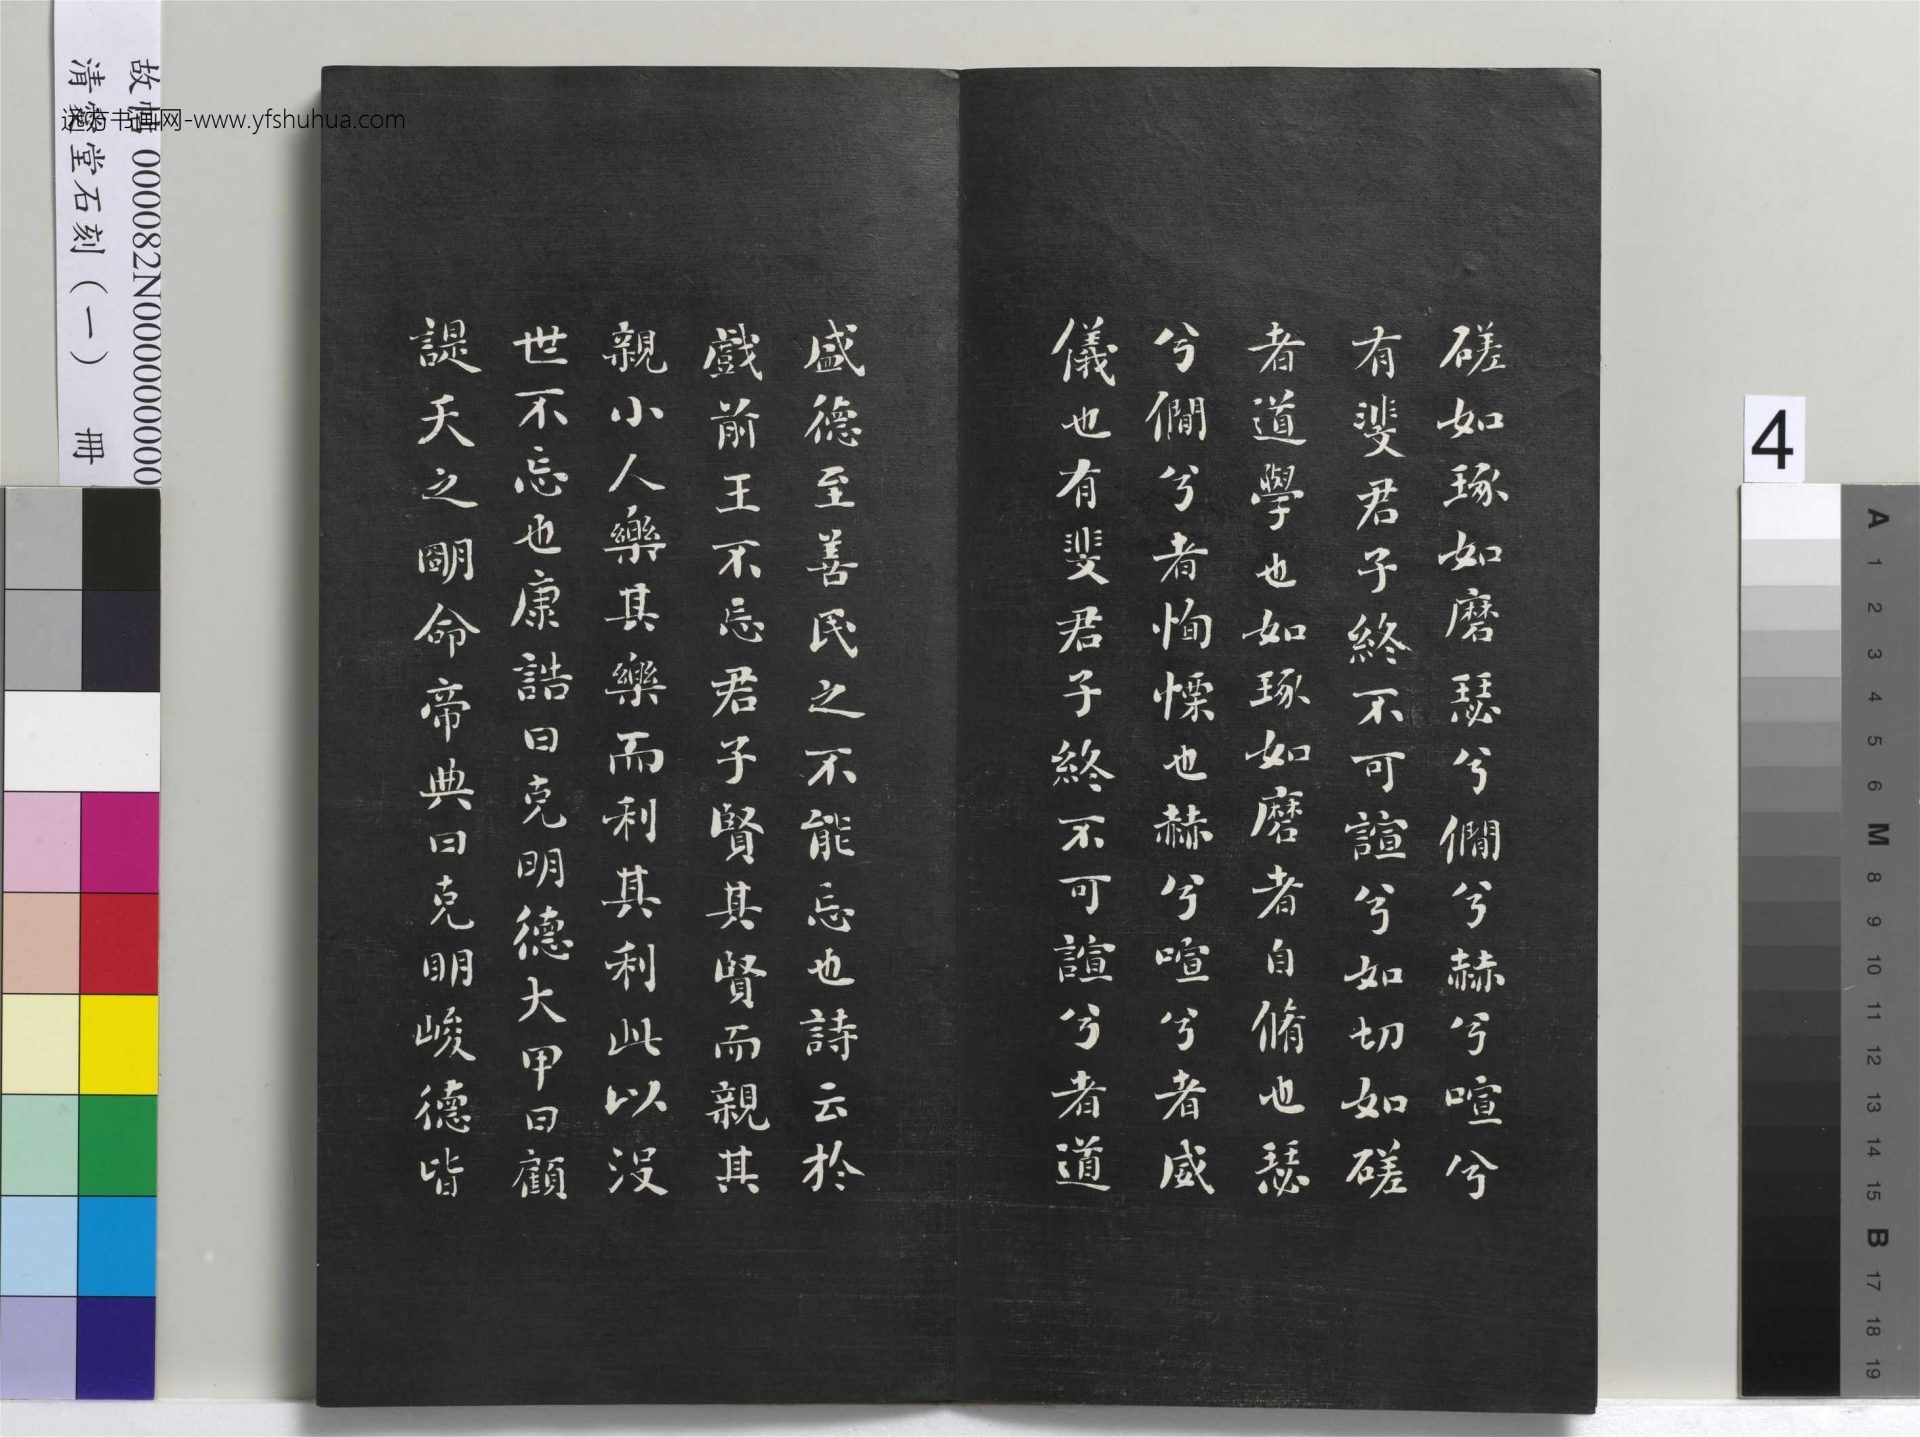 磋如琢如磨瑟兮僩兮赫兮喧兮
有斐君子終不可諠兮如切如磋
者道學也如琢如磨者自脩也瑟
兮僩兮者恂慄也赫兮喧兮者威
儀也有斐君子終不可諠兮者道
盛德至善民之不能忘也詩云於
戲前王不忘君子賢其賢而親其
親小人樂其樂而利其利此以沒
世不忘也康誥曰克明德大甲曰顧
諟天之明命帝典曰克明峻德皆
故帖 000082N000000000
清愛堂石刻(一) 冊
书画网-www.yfshuhua.com
4
A
1
2
3
4
5
6
M
8
9
10
11
12
13
14
15
B
17
18
19